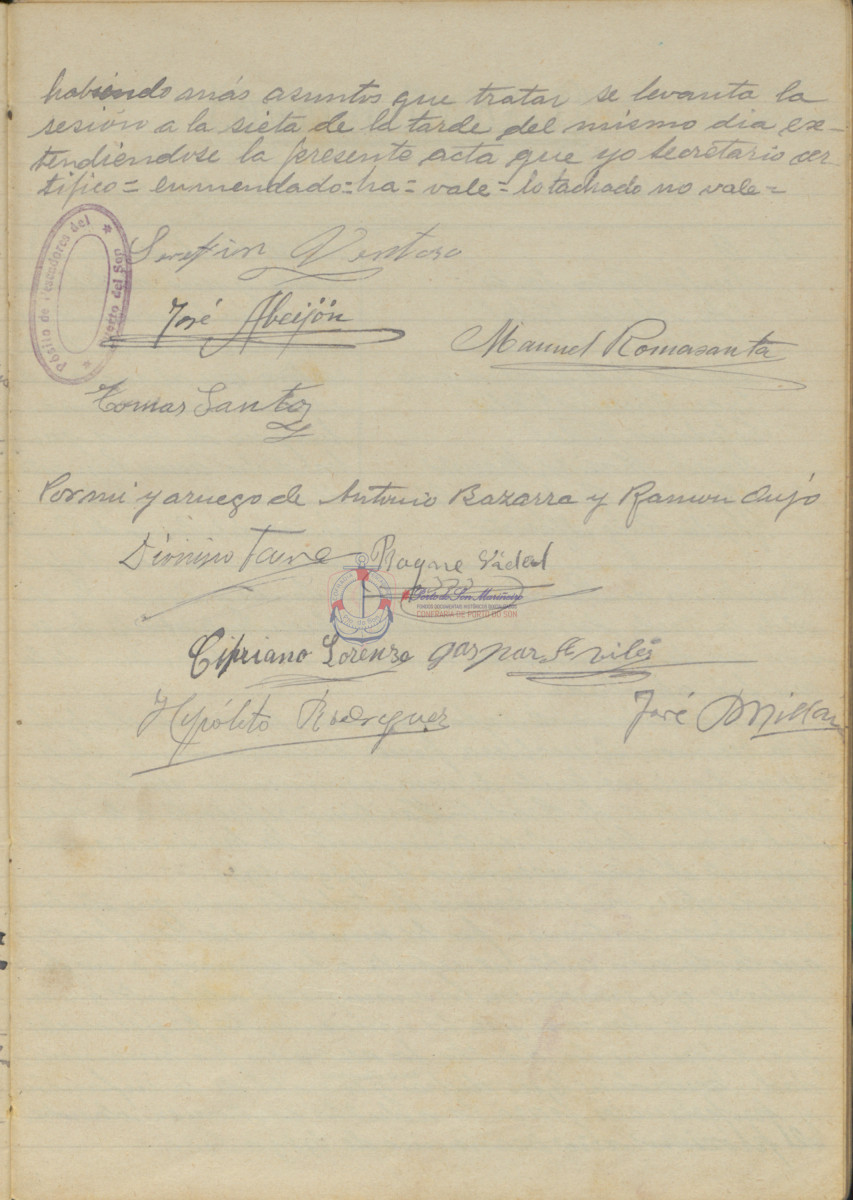 habiendo más asuntos que tratar se levanta la
sesión a la sieta de la tarde del mismo dia ex-
tendiéndose la presente acta que yo Secretario cer-
tifico = enmendado = ha = vale = lo tachado no vale =
Pósito de Pescadores del
Puerto del Son
Serafin Ventoso
José Abeijón
Manuel Romasanta
Tomas Santos
Por mi y aruego de Antonio Bazarra y Ramon
Dionisio Roque Vidal
Porto do Son Mariñeiro
CONFRARÍA DE PORTO DO SON
Cipriano Lorenzo Gaspar
Hipólito Rodriguez
José